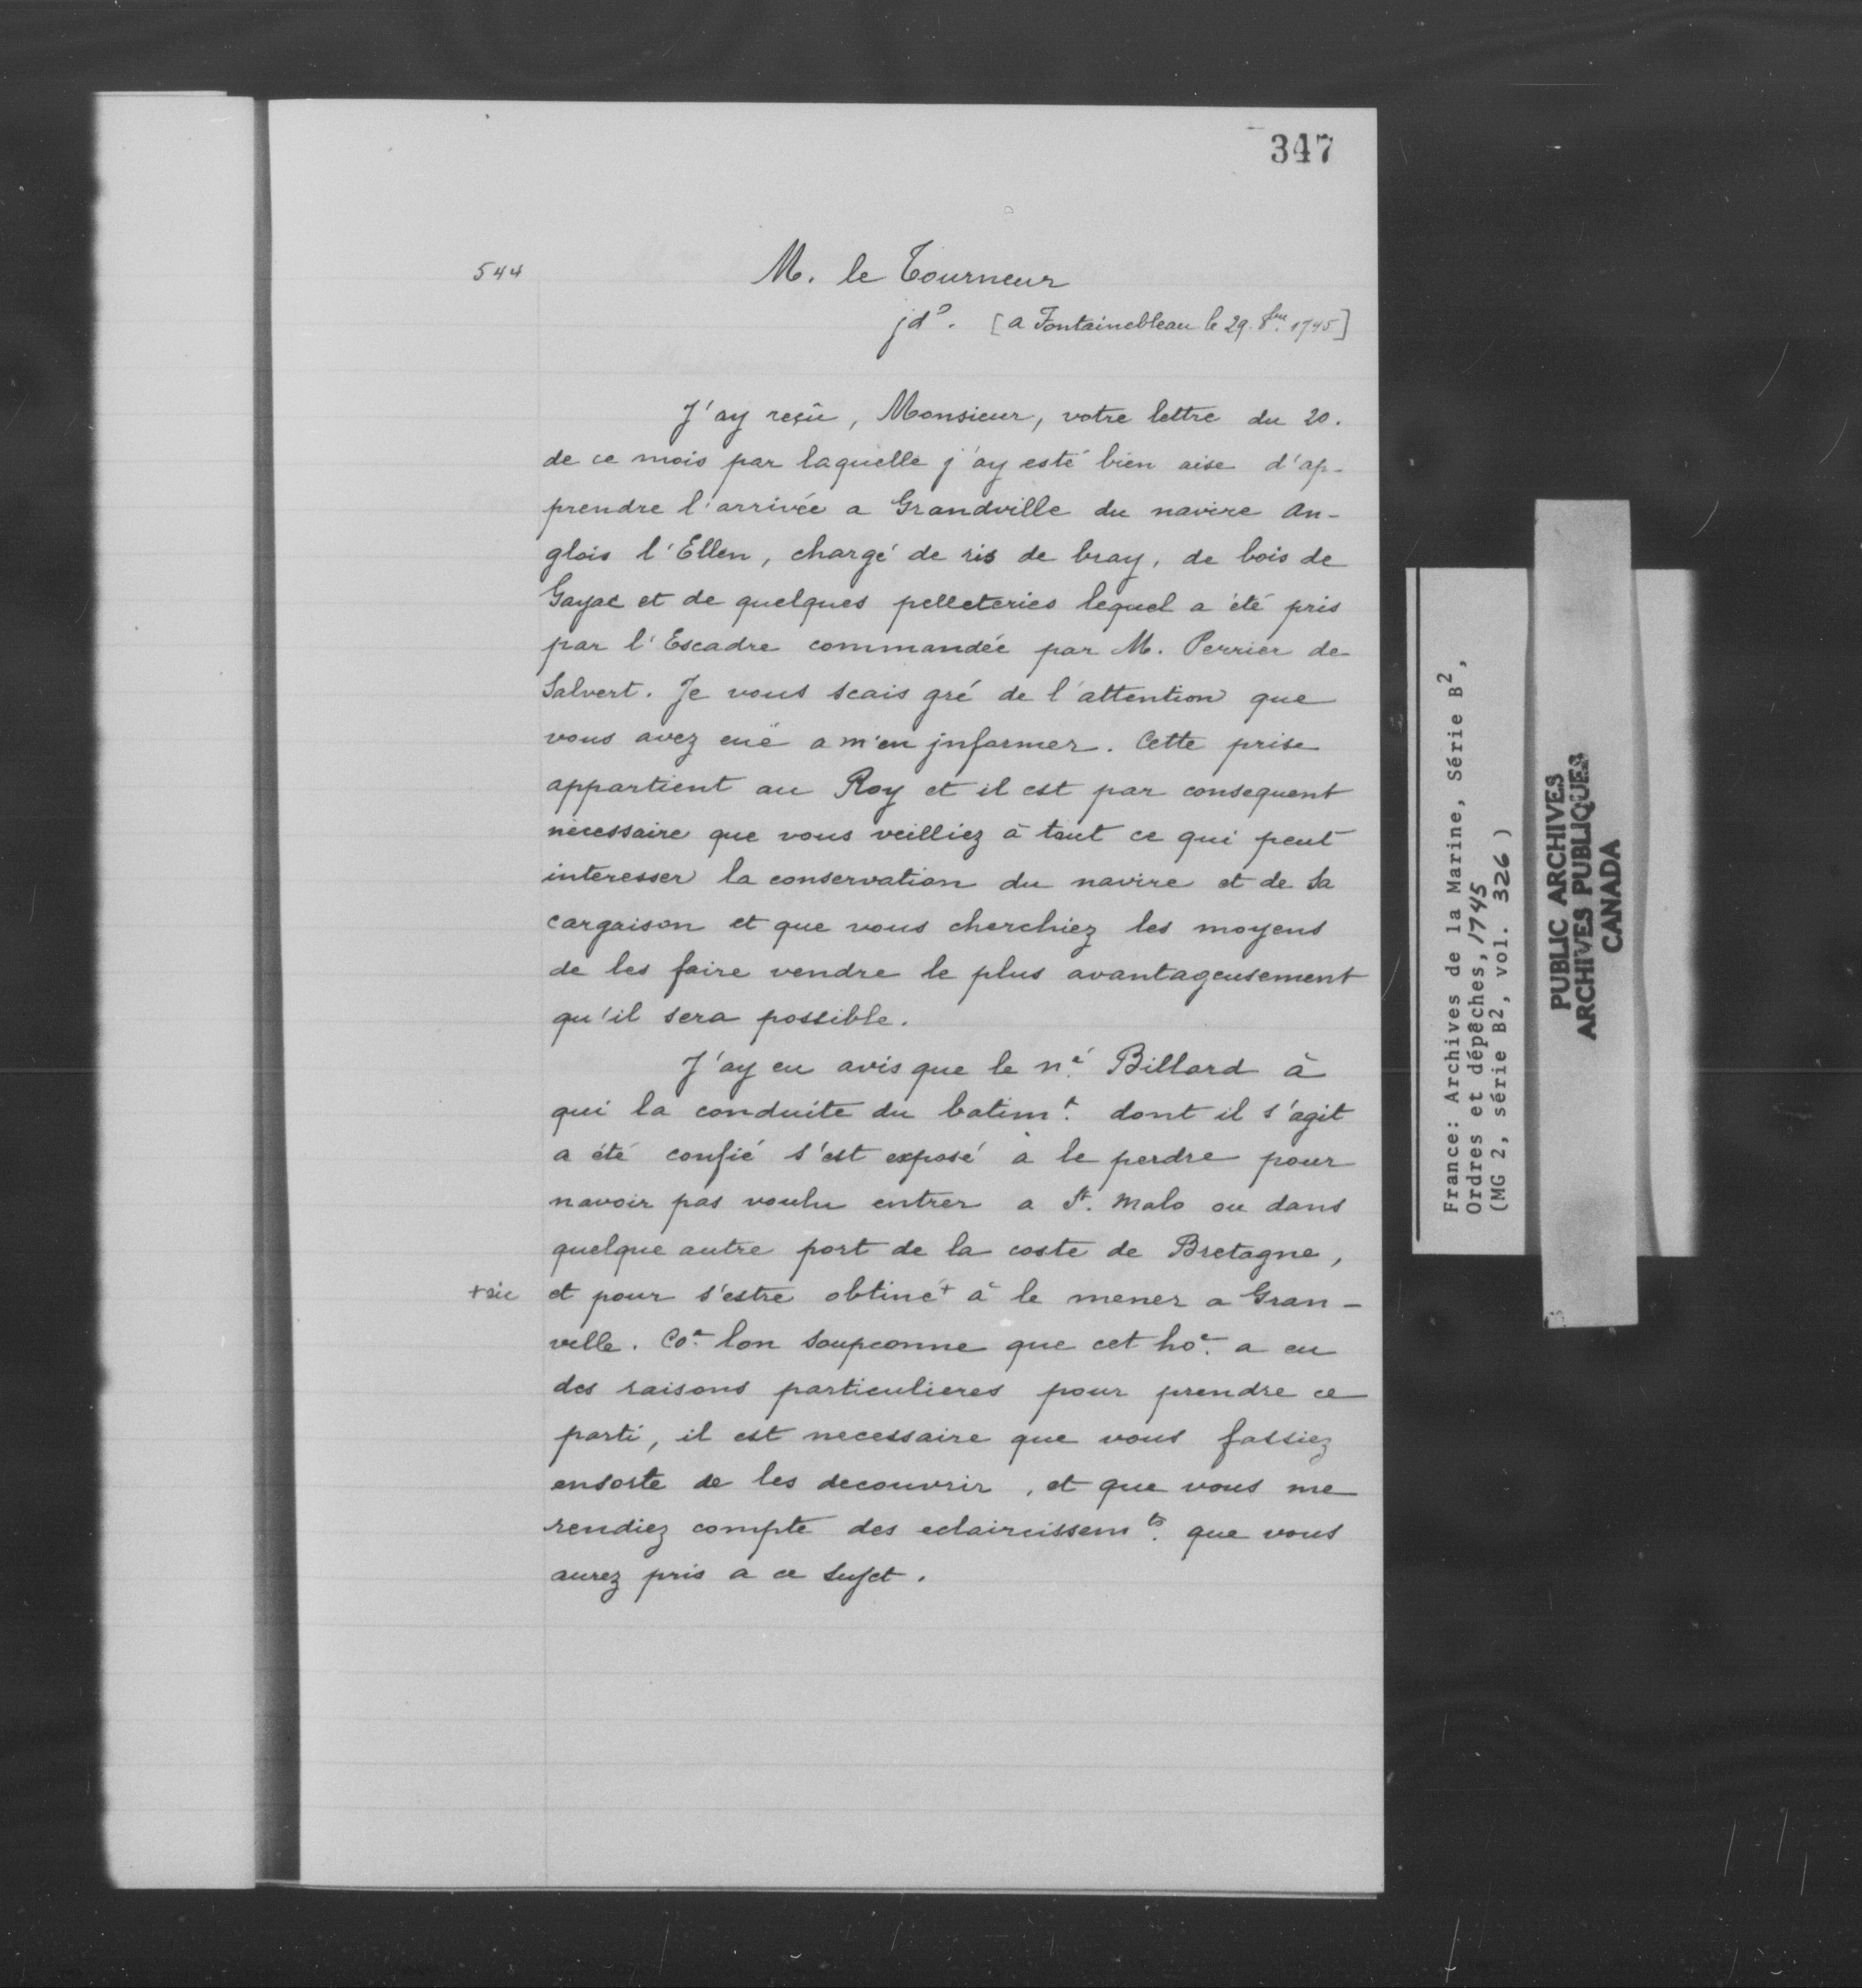 347
544
M. le Tourneur
jd°. [a Fontainebleau le 29. 8bre 1745]
J'ay reçû, Monsieur, votre lettre du 20.
de ce mois par laquelle j'ay esté bien aise d'ap-
prendre l'arrivée a Grandville du navire An-
glois l'Ellen, chargé de ris de bray, de bois de
Gayac et de quelques pelleteries lequel a été pris
par l'Escadre commandée par M. Perrier de
Salvert. Je vous scais gré de l'attention que
vous avez euë a m'en jnformer. Cette prise
appartient au Roy et il est par consequent
necessaire que vous veilliez à tout ce qui peut
interesser la conservation du navire et de sa
cargaison et que vous cherchiez les moyens
de les faire vendre le plus avantageusement
qu'il sera possible.
J'ay eu avis que le n.é Billard à
qui la conduite du batim.t dont il s'agit
a été confié s'est exposé à le perdre pour
navoir pas voulu entrer a St. Malo ou dans
quelque autre port de la coste de Bretagne,
+sic et pour s'estre obtiné+ à le mener a Gran-
ville. Co.e lon soupconne que cet ho.e a eu
des raisons particulieres pour prendre ce
parti, il est necessaire que vous fassiez
ensorte de les decouvrir, et que vous me
rendiez compte des eclaircissem.ts que vous
aurez pris a ce sujet.
France: Archives de la Marine, Série B2,
Ordres et dépêches, 1745
(MG 2, série B2, vol. 326)
PUBLIC ARCHIVES
ARCHIVES PUBLIQUES
CANADA